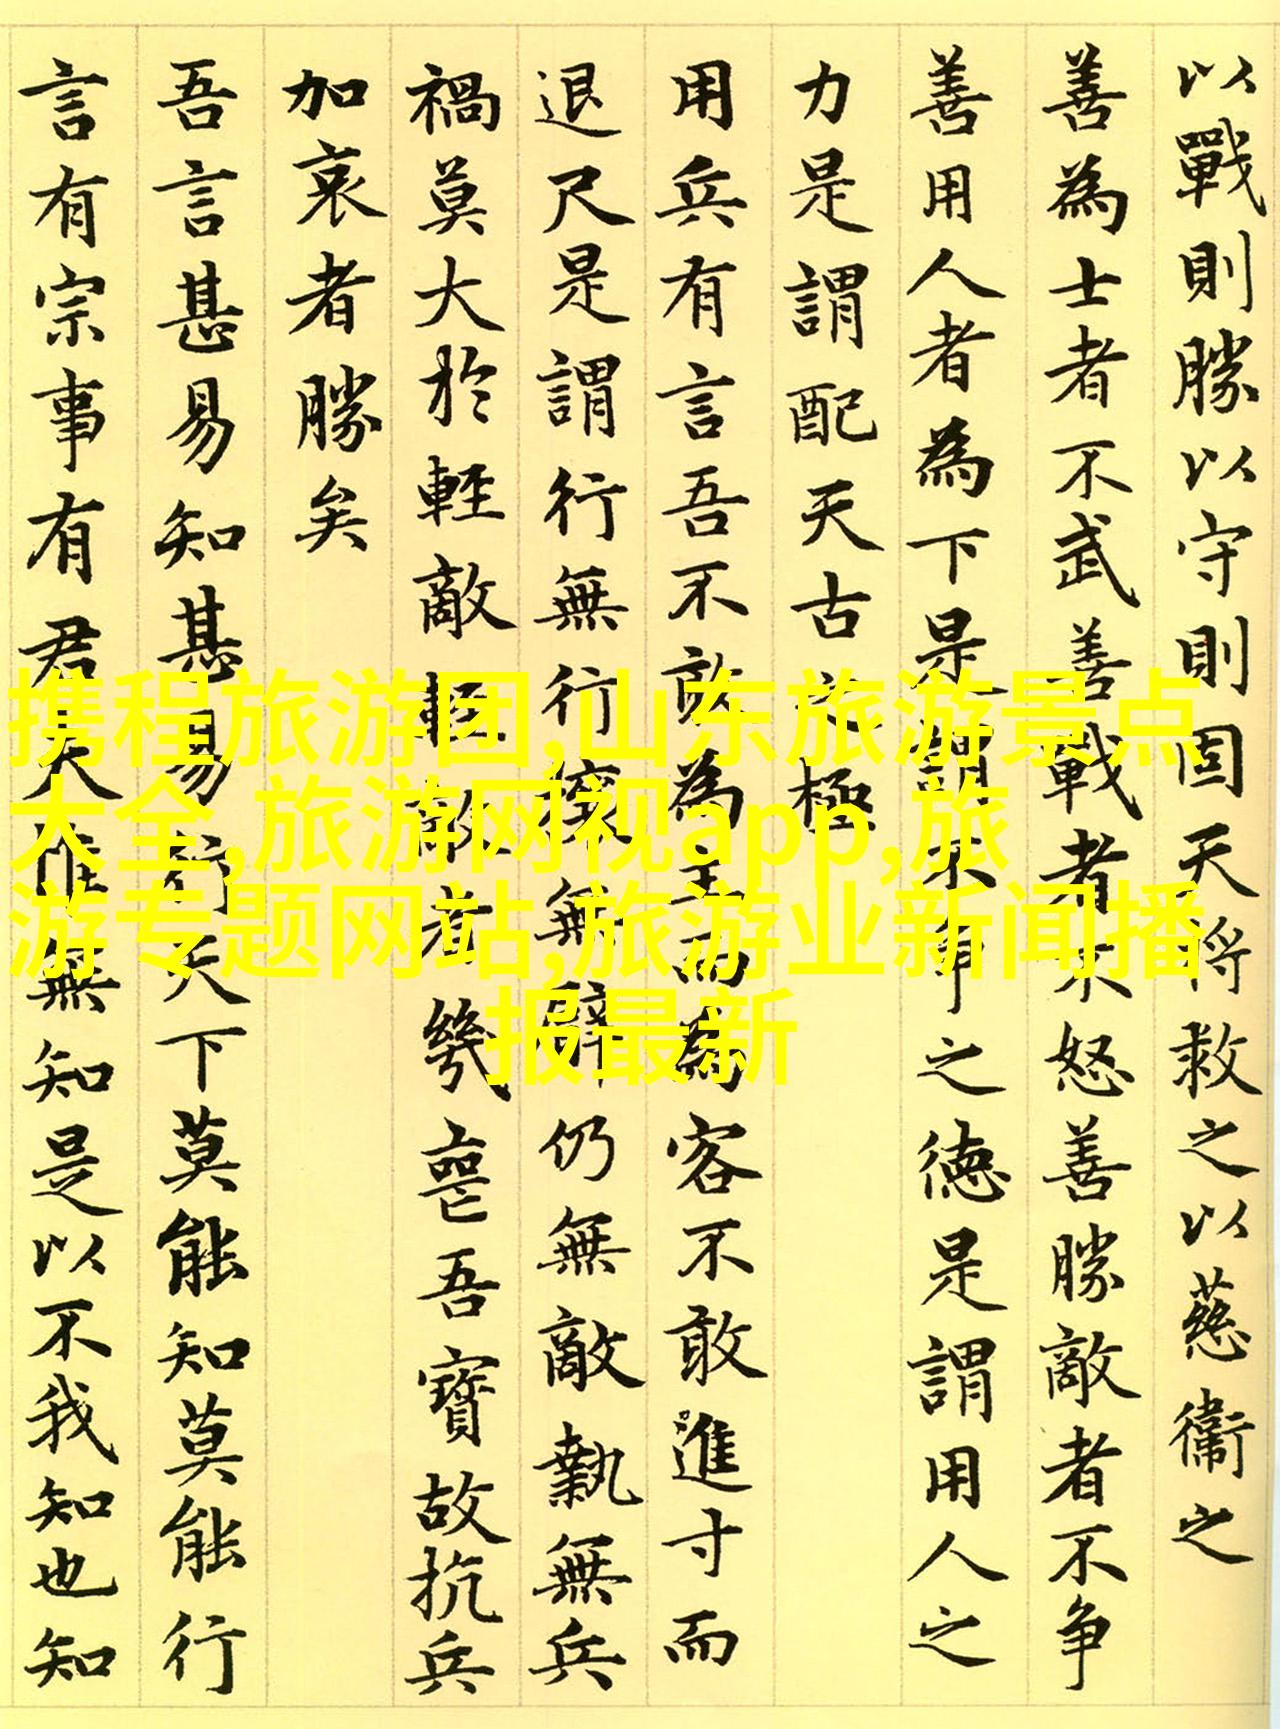 以戰則勝以守則固天将救之以慈衞之
善為士者不武善戰者不怒善勝敵者不争
善用人者為下是謂不争之德是謂用人之
力是謂配天古之極
用兵有言吾不敢為主而為客不敢進寸而
退尺是謂行無行攘無臂仍無敵執無兵
禍莫大於輕敵輕敵者幾喪吾寶故抗兵
加哀者勝矣
吾言甚易知甚易行天下莫能知莫能行
言有宗事有君夫惟無知是以不我知也知
携程旅游团,山东旅游景点
大全,旅游网视app,旅
游专题网站,旅游业新闻播
报最新